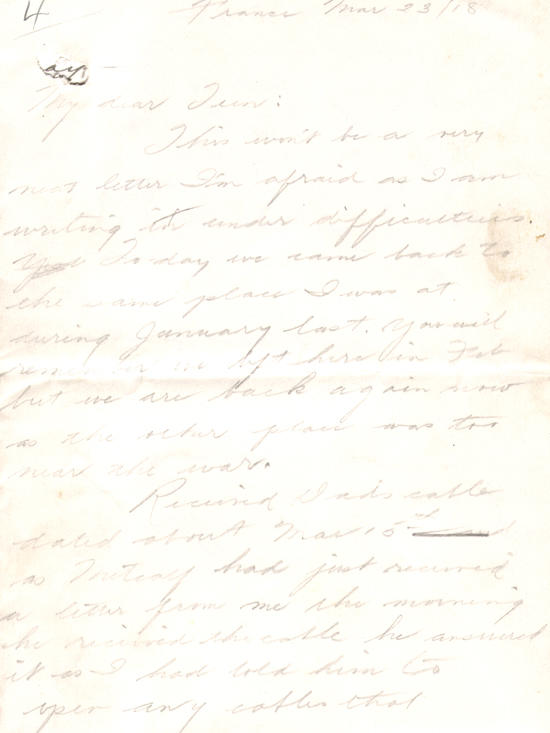 4 France Mar 23/18
My dear Teen:
This won't be a very
neat letter I'm afraid as I am
writing it under difficulties
To day we came back to
the same place I was at
during January last. You will
remember we left here in Feb
but we are back again now
as the other place was too
near the war.
Received Dad's cable
dated about Mar 15th
as Metcalf had just received
a letter from me the morning
he received the cable he answered
it as I had told him to
open any cables that